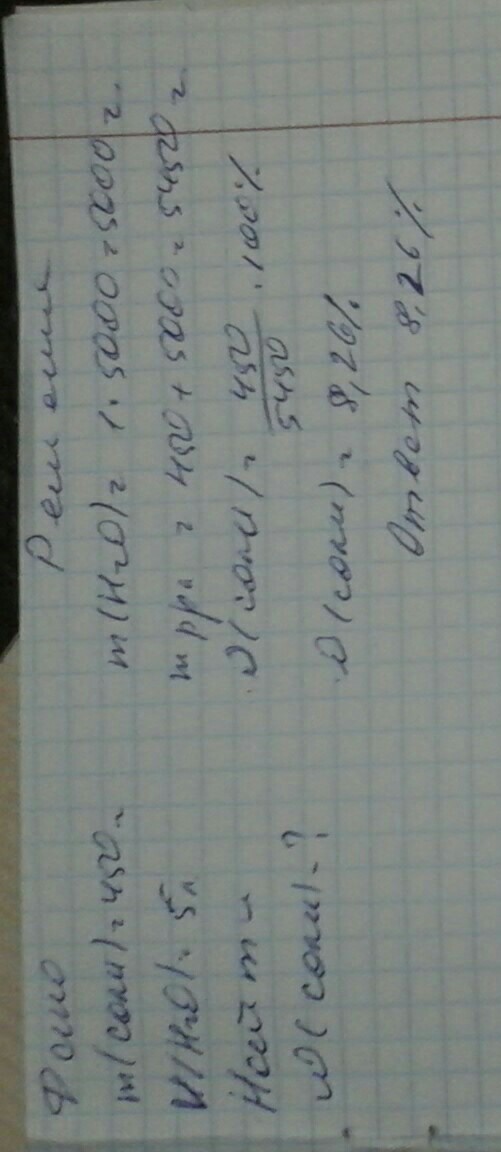 Дано
m(соли)=450г
V(H2O)=5л
Найти
ω(соли)-?
Решение
m(H2O)=1·5000=5000г.
m рра=450+5000=5450г
ω(соли)=450/5450·100%
ω(соли)=8,26%
Ответ 8,26%